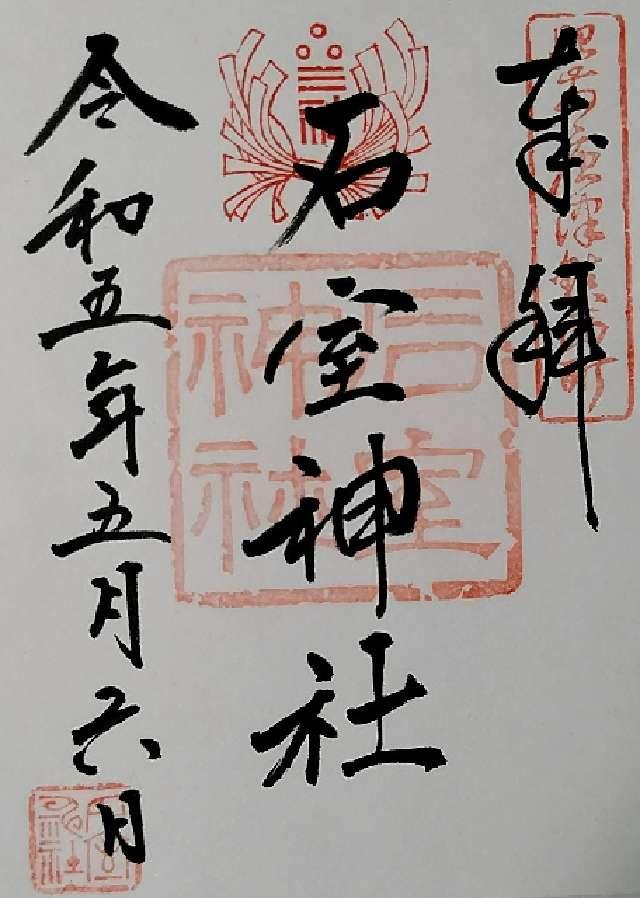 奉拝
石室神社
令和五年五月六日
石室
神社